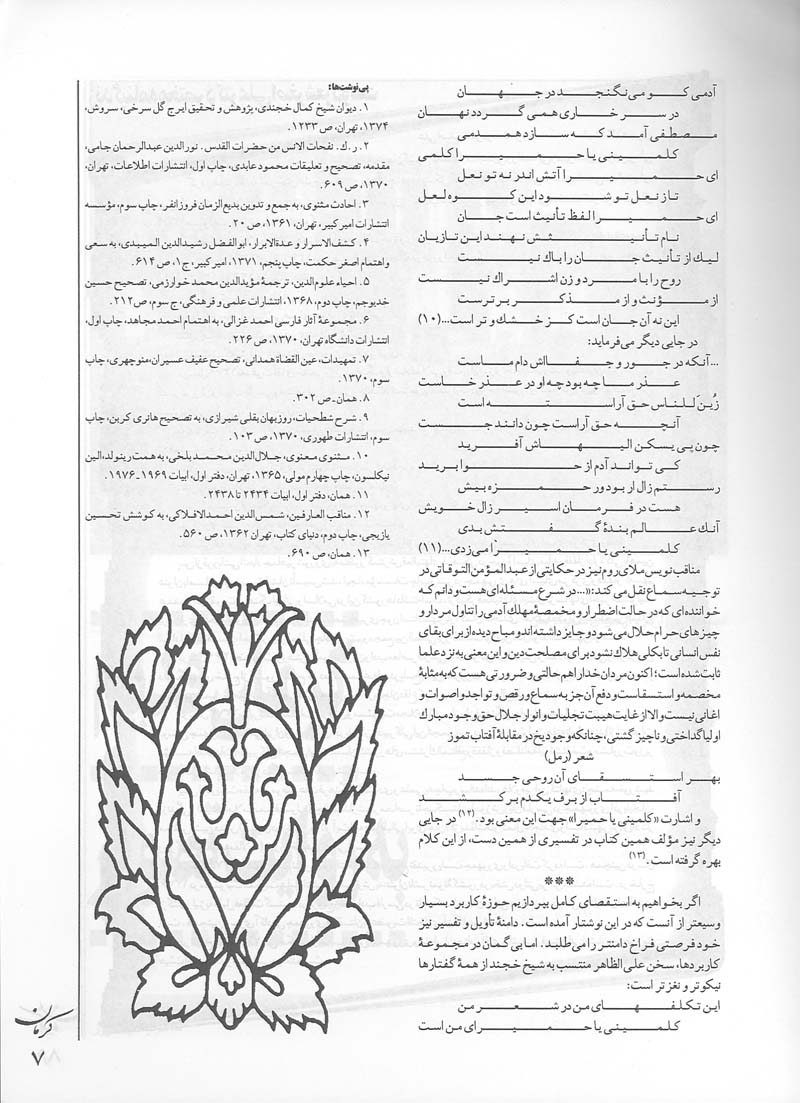 آدمی کو می‌نگنجد در جهان
در سر خاری همی گردد نهان
مصطفی آمد که سازد همدمی
کلمینی یا حمیرا کلمی
ای حمیرا آتش اندر نه تو نعل
تا ز نعل تو شود این کوه لعل
ای حمیرا لفظ تأنیث است جان
نام تأنیثش نهند این تازیان
لیک از تأنیث جان را باک نیست
روح را با مرد و زن اشراک نیست
از مؤنث و از مذکر برترست
این نه آن جان است کز خشک و تر است...(۱۰)
در جایی دیگر می‌فرماید:
...آنکه در جور و جفااش دام ماست
عذر ما چه بود چه او در عذر خاست
زُیّنَ للناس حق آراسته است
آنچه حق آراست چون دانند جست
چون پی یسکن الیهاش آفرید
کی تواند آدم از حوا برید
رستم زال ار بود ور حمزه بیش
هست در فرمان اسیر زال خویش
آنك عالم بندهٔ گفتش بدی
کلمینی یا حمیرا می‌زدی...(۱۱)
مناقب نویس ملای روم نیز در حکایتی از عبدالمؤمن التوقاتی در
توجیه سماع نقل می‌کند: «...در شرع مسئله‌ای هست و دانم که
خوانده‌ای که در حالت اضطرار و مخمصهٔ مهلك آدمی را تناول مردار و
چیزهای حرام حلال می‌شود و جایز داشته‌اند و مباح دیده از برای بقای
نفس انسانی تا بکلی هلاك نشود برای مصلحت دین و این معنی به نزد علما
ثابت شده است؛ اکنون مردان خدا را هم حالتی و ضرورتی هست که به مثابهٔ
مخمصه و استسقاست و دفع آن جز به سماع و رقص و تواجد و اصوات و
اغانی نیست و الا از غایت هیبت تجلیات و انوار جلال حق وجود مبارك
اولیا گداختی و ناچیز گشتی، چنانکه وجود یخ در مقابلهٔ آفتاب تموز
شعر (رمل)
بهر استسقای آن روحی جسد
آفتاب از برف یکدم برکشد
و اشارت «کلمینی یا حمیرا» جهت این معنی بود.(۱۲) در جایی
دیگر نیز مؤلف همین کتاب در تفسیری از همین دست، از این کلام
بهره گرفته است.(۱۳)
***
اگر بخواهیم به استقصای کامل بپردازیم حوزهٔ کاربرد بسیار
وسیعتر از آنست که در این نوشتار آمده است. دامنهٔ تأویل و تفسیر نیز
خود فرصتی فراخ دامنتر را می‌طلبد. اما بی گمان در مجموعهٔ
کاربردها، سخن علی الظاهر منتسب به شیخ خجند از همهٔ گفتارها
نیکوتر و نغزتر است:
این تکلفهای من در شعر من
کلمینی یا حمیرای من است
پی‌نوشت‌ها:
۱. دیوان شیخ کمال خجندی، پژوهش و تحقیق ایرج گل سرخی، سروش،
۱۳۷۴، تهران، ص ۱۲۳۳.
۲. ر.ك. نفحات الانس من حضرات القدس. نورالدین عبدالرحمان جامی،
مقدمه، تصحیح و تعلیقات محمود عابدی، چاپ اول، انتشارات اطلاعات، تهران،
۱۳۷۰، ص ۶۰۹.
۳. احادث مثنوی، به جمع و تدوین بدیع الزمان فروزانفر، چاپ سوم، مؤسسه
انتشارات امیرکبیر، تهران، ۱۳۶۱، ص ۲۰.
۴. کشف‌الاسرار و عدةالابرار، ابوالفضل رشیدالدین المیبدی، به سعی
و اهتمام اصغر حکمت، چاپ پنجم، ۱۳۷۱، امیرکبیر، ج۱، ص ۶۱۴.
۵. احیاء علوم‌الدین، ترجمهٔ مؤیدالدین محمد خوارزمی، تصحیح حسین
خدیوجم، چاپ دوم، ۱۳۶۸، انتشارات علمی و فرهنگی، ج سوم، ص۲۱۲.
۶. مجموعهٔ آثار فارسی احمد غزالی، به اهتمام احمد مجاهد، چاپ اول،
انتشارات دانشگاه تهران، ۱۳۷۰، ص ۲۲۶.
۷. تمهیدات، عین القضاة همدانی، تصحیح عفیف عسیران، منوچهری، چاپ
سوم، ۱۳۷۰.
۸. همان ـ ص ۳۰۲.
۹. شرح شطحیات، روزبهان بقلی شیرازی، به تصحیح هانری کربن، چاپ
سوم، انتشارات طهوری، ۱۳۷۰، ص ۱۰۳.
۱۰. مثنوی معنوی، جلال‌الدین محمد بلخی، به همت رینولد، الین
نیکلسون، چاپ چهارم مولی، ۱۳۶۵، تهران، دفتر اول، ابیات ۱۹۶۹ـ۱۹۷۶.
۱۱. همان، دفتر اول، ابیات ۲۴۳۴ تا ۲۴۳۸.
۱۲. مناقب العارفین، شمس‌الدین احمدالافلاکی، به کوشش تحسین
یازیجی، چاپ دوم، دنیای کتاب، تهران ۱۳۶۲، ص ۵۶۰.
۱۳. همان، ص ۶۹۰.
کرمان
۷